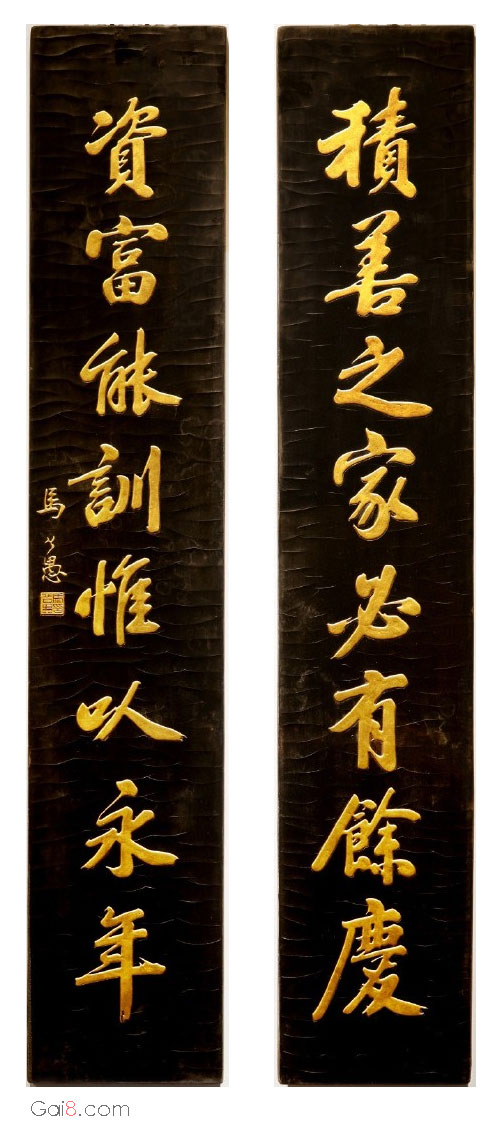 積善之家必有餘慶
資富能訓惟以永年
馬公愚
Gai8.com